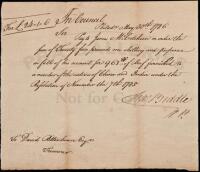 In Council
For £24.1.6 Philad.a May 30th 1786
Sir
Pay to James McCutcheon order the
sum of Twenty four pounds one shilling and sixpence
in full of his account for 963 lb of beef furnished to
a number of the nations of Choctaw Indian under the
Resolution of November the 7th 1785
Chas Biddle
V P
To David Rittenhouse Esqr
Treasurer